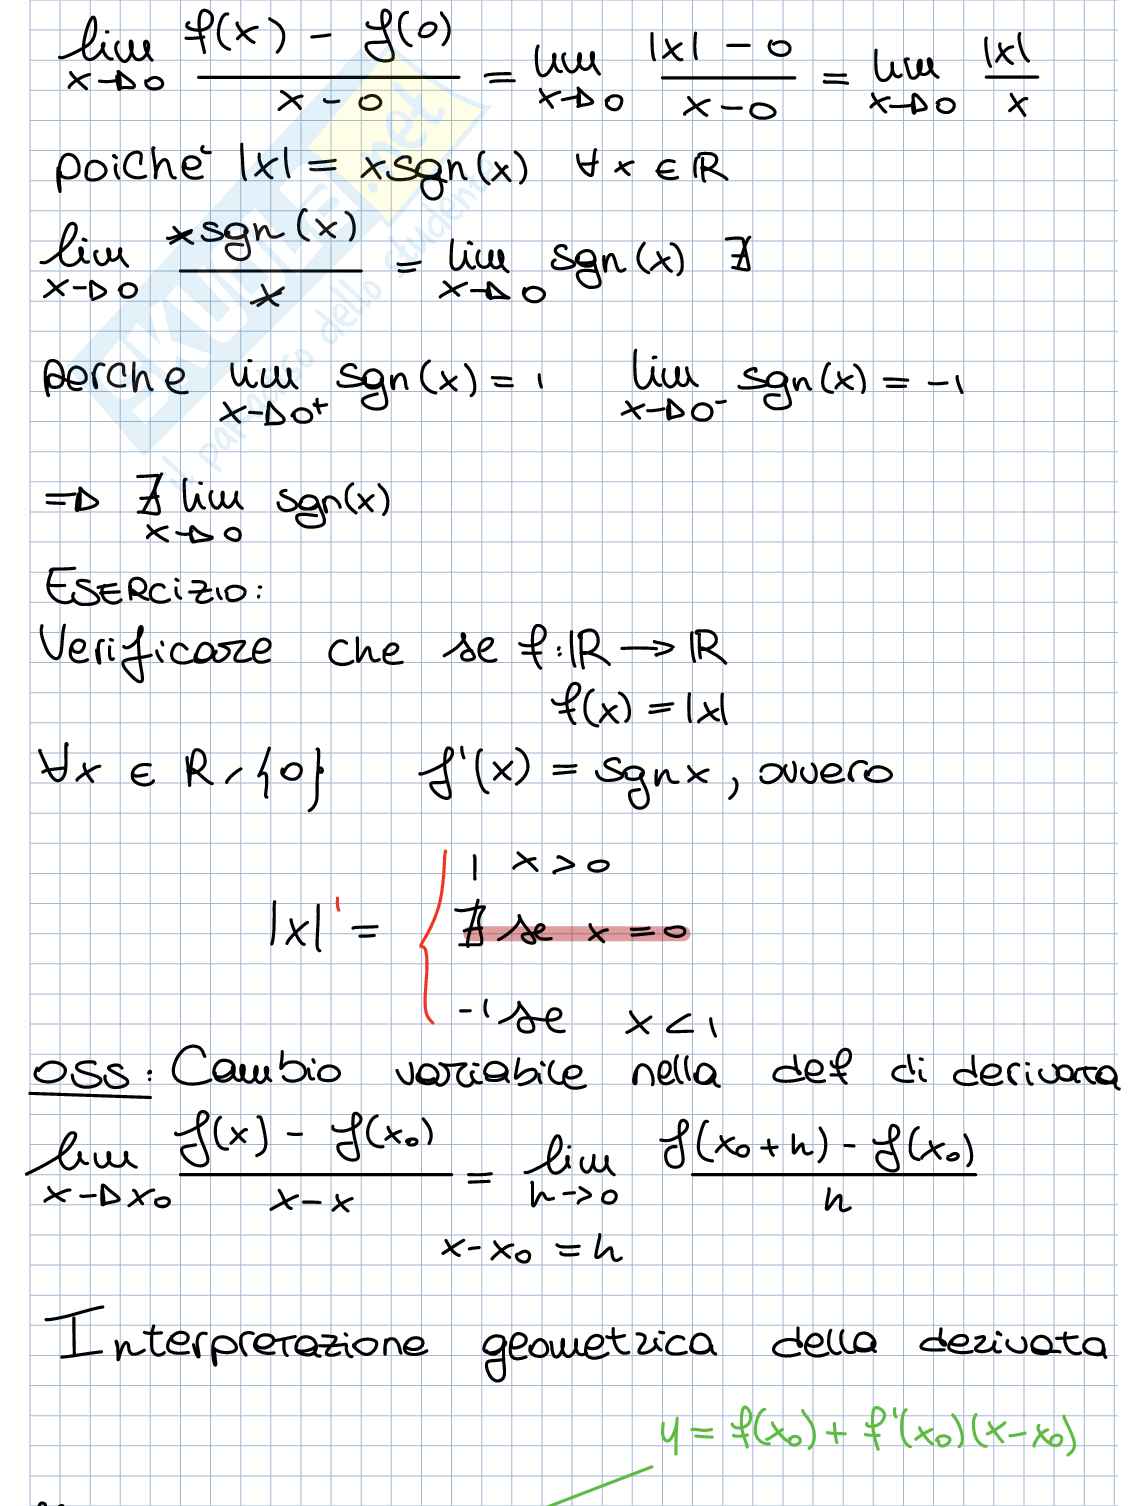 lim x→0 f(x) - f(0) / x - 0 = lim x→0 |x| - 0 / x - 0 = lim x→0 |x| / x
poiché |x| = xsgn(x) ∀ x ∈ ℝ
lim x→0 xsgn(x) / x = lim x→0 sgn(x) ∄
perche lim x→0⁺ sgn(x) = 1 lim x→0⁻ sgn(x) = -1
⇒ ∄ lim x→0 sgn(x)
ESERCIZIO:
Verificare che se f: ℝ → ℝ
f(x) = |x|
∀x ∈ R \ {0} f'(x) = sgn x, ovvero
1 x > 0
|x|' = { ∄ se x = 0
-1 se x < 1
OSS: Cambio variabile nella def di derivata
lim x→x₀ f(x) - f(x₀) / x - x = lim h→0 f(x₀ + h) - f(x₀) / h
x - x₀ = h
Interpretazione geometrica della derivata
y = f(x₀) + f'(x₀)(x - x₀)
SKUOLA.net
il paradiso dello studente